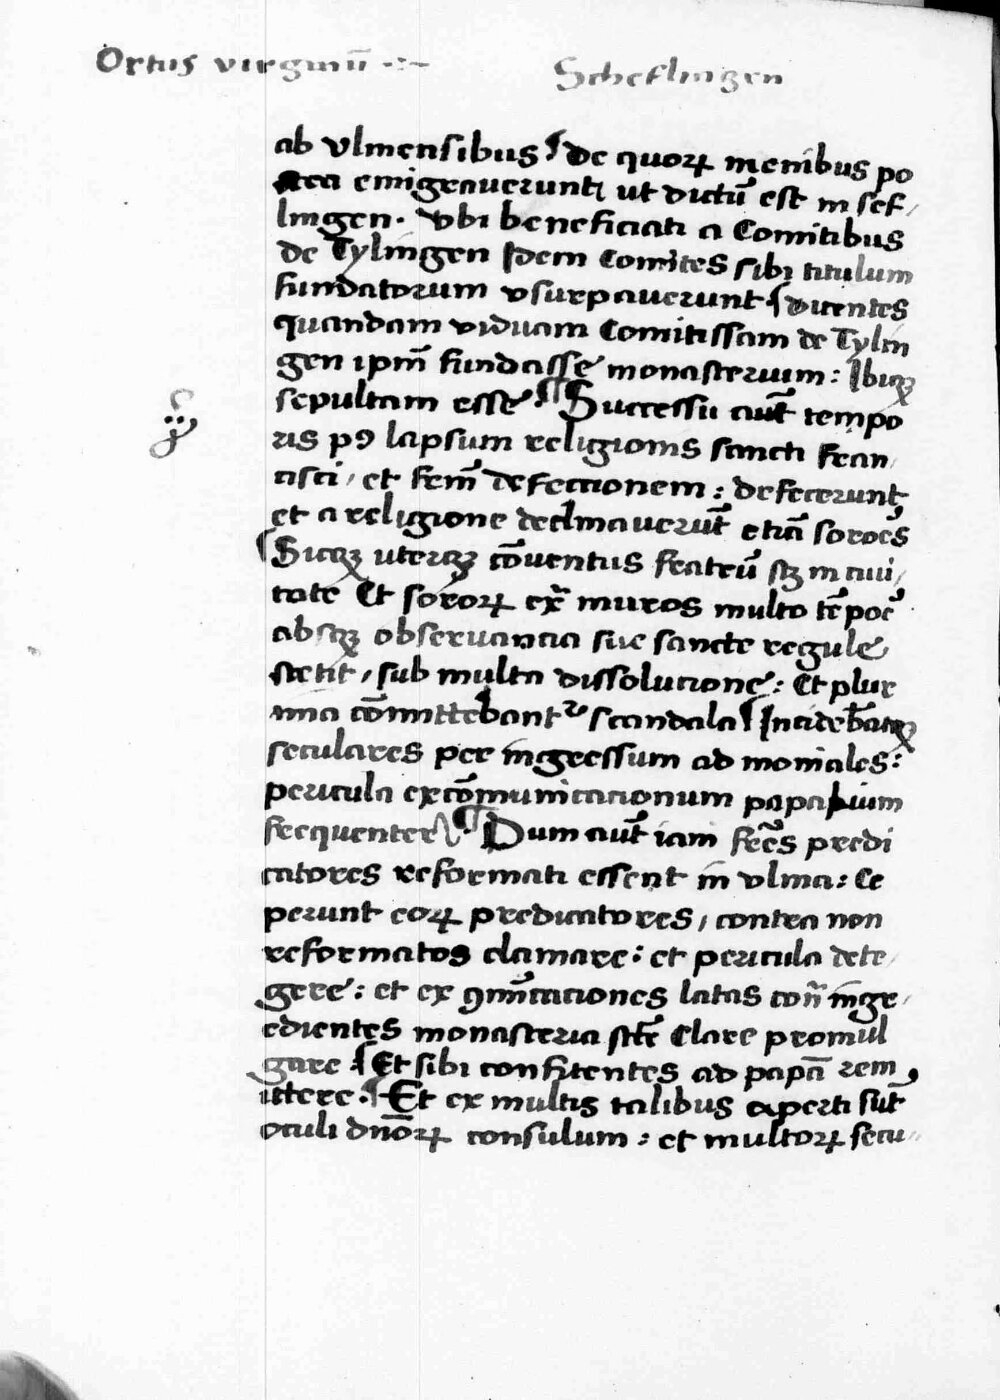 Ortus virginū Scheflingen
ab vlmensibus ¶ de quoꝝ menibus po
stea emigrauerunt, ut dictū est in sef/
lingen. Vbi beneficiati a Comitibus
de Tylingen Idem Comites sibi titulum
fundatorum vsurpauerunt ¶ dicentes
quandam viduam Comitissam de Tylin
gen ipm̄ fundasse monasterium: Ibiqꝫ
sepultam esse. ¶ Successu aut̄ tempo
ris pꝰ lapsum religionis sancti Fran/
cisci, et frm̄ defectionem: defecerunt
et a religione declinauerūt etiā sorores
¶ Sicqꝫ uterqꝫ cōuentus fratrū sꝫ in ciui/
tate Et sororꝝ ex̄ muros multo tēpore
absqꝫ obseruancia sue sancte regule
stetit, sub multa dissolucione: Et plur
ima cōmittebantᷣ scandala ¶ Incidebātqꝫ
seculares per ingressum ad moniales:
pericula excōmunicacionum papalium
frequenter. ¶ Dum aut̄ iam frēs predi
catores reformati essent in vlma: Ce
perunt eoꝝ predicatores, contra non
reformatos clamare: et pericula dete/
gere: et ex ꝯmūicaciones latas conᷓ ingr/
edientes monasteria scē Clare promul
gare ¶ Et sibi confitentes ad papā rem
ittere. ¶ Et ex multis talibus aperti sūt
oculi dn̄oꝝ consulum: et multoꝝ secu